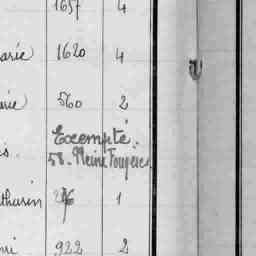 1657 4
arie 1620 4
rie 560 2
Exempté.
is. 58. Pleine Fougères
thurin 1
ri 922 2